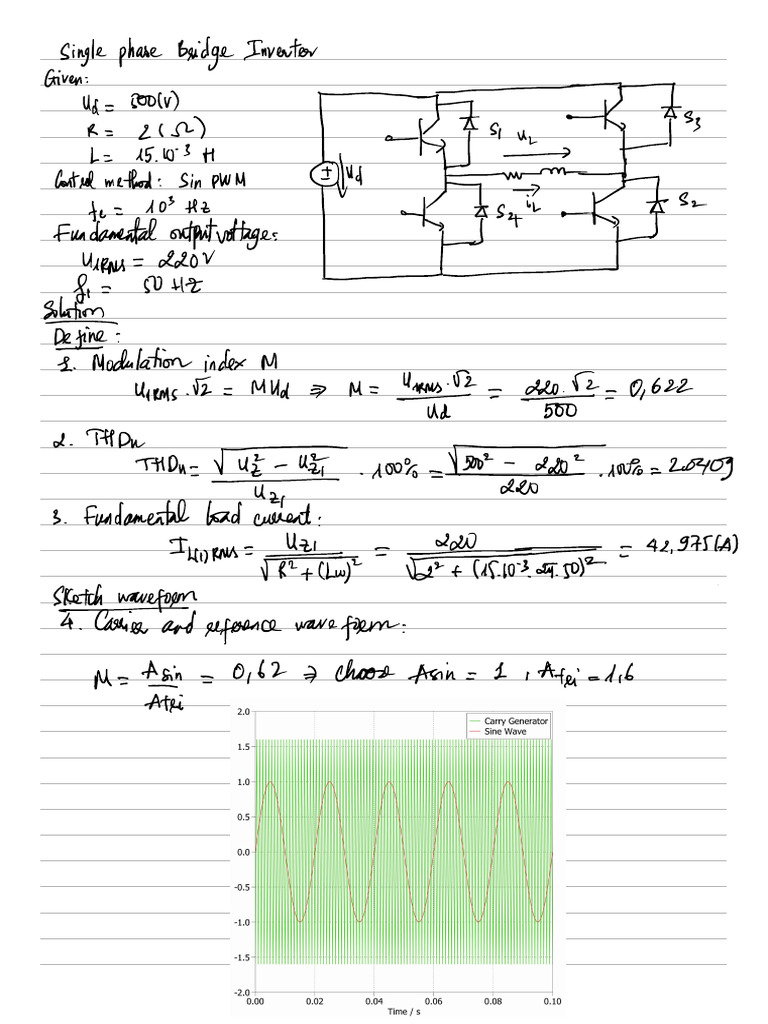 Single phase Bridge Inverter
Given:
Ud = 500(V)
R = 2(Ω)
L = 15.10⁻³ H
Control method: Sin PWM
fc = 10³ Hz
Fundamental output voltage:
U1RMS = 220V
f1 = 50 Hz
Ud
S1
UL
S3
iL
S4
S2
Solution
Define:
1. Modulation index M
U1RMS.√2 = MUd ⇒ M = U1RMS.√2 / Ud = 220.√2 / 500 = 0,622
2. THDu
THDu = √(UZ² − UZ1²) / UZ1 . 100% = √(500² − 220²) / 220 . 100% = 2.0409
3. Fundamental load current:
IL(1)RMS = UZ1 / √(R² + (Lω)²) = 220 / √(2² + (15.10⁻³.2π.50)²) = 42,975(A)
Sketch waveform
4. Carrier and reference wave form:
M = Asin / Atri = 0,62 ⇒ choose Asin = 1 , Atri = 1,6
2.0
1.5
1.0
0.5
0.0
-0.5
-1.0
-1.5
-2.0
Carry Generator
Sine Wave
0.00 0.02 0.04 0.06 0.08 0.10
Time / s